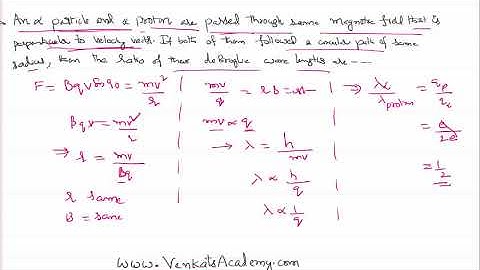 An α particle and a proton are passed through same magnetic field that is
perpendicular to velocity vector. If both of them followed a circular path of same
radius, then the ratio of their deBroglie wave lengths are ---
F = Bqv Sin90 = mv²/r
Bqv = mv²/r
⇒ r = mv/Bq
r same
B = same
mv/q = rB = const
mv ∝ q
→ λ = h/mv
λ ∝ h/q
λ ∝ 1/q
⇒ λα/λproton = qp/qα
= e/2e
= 1/2
www.VenkatsAcademy.com